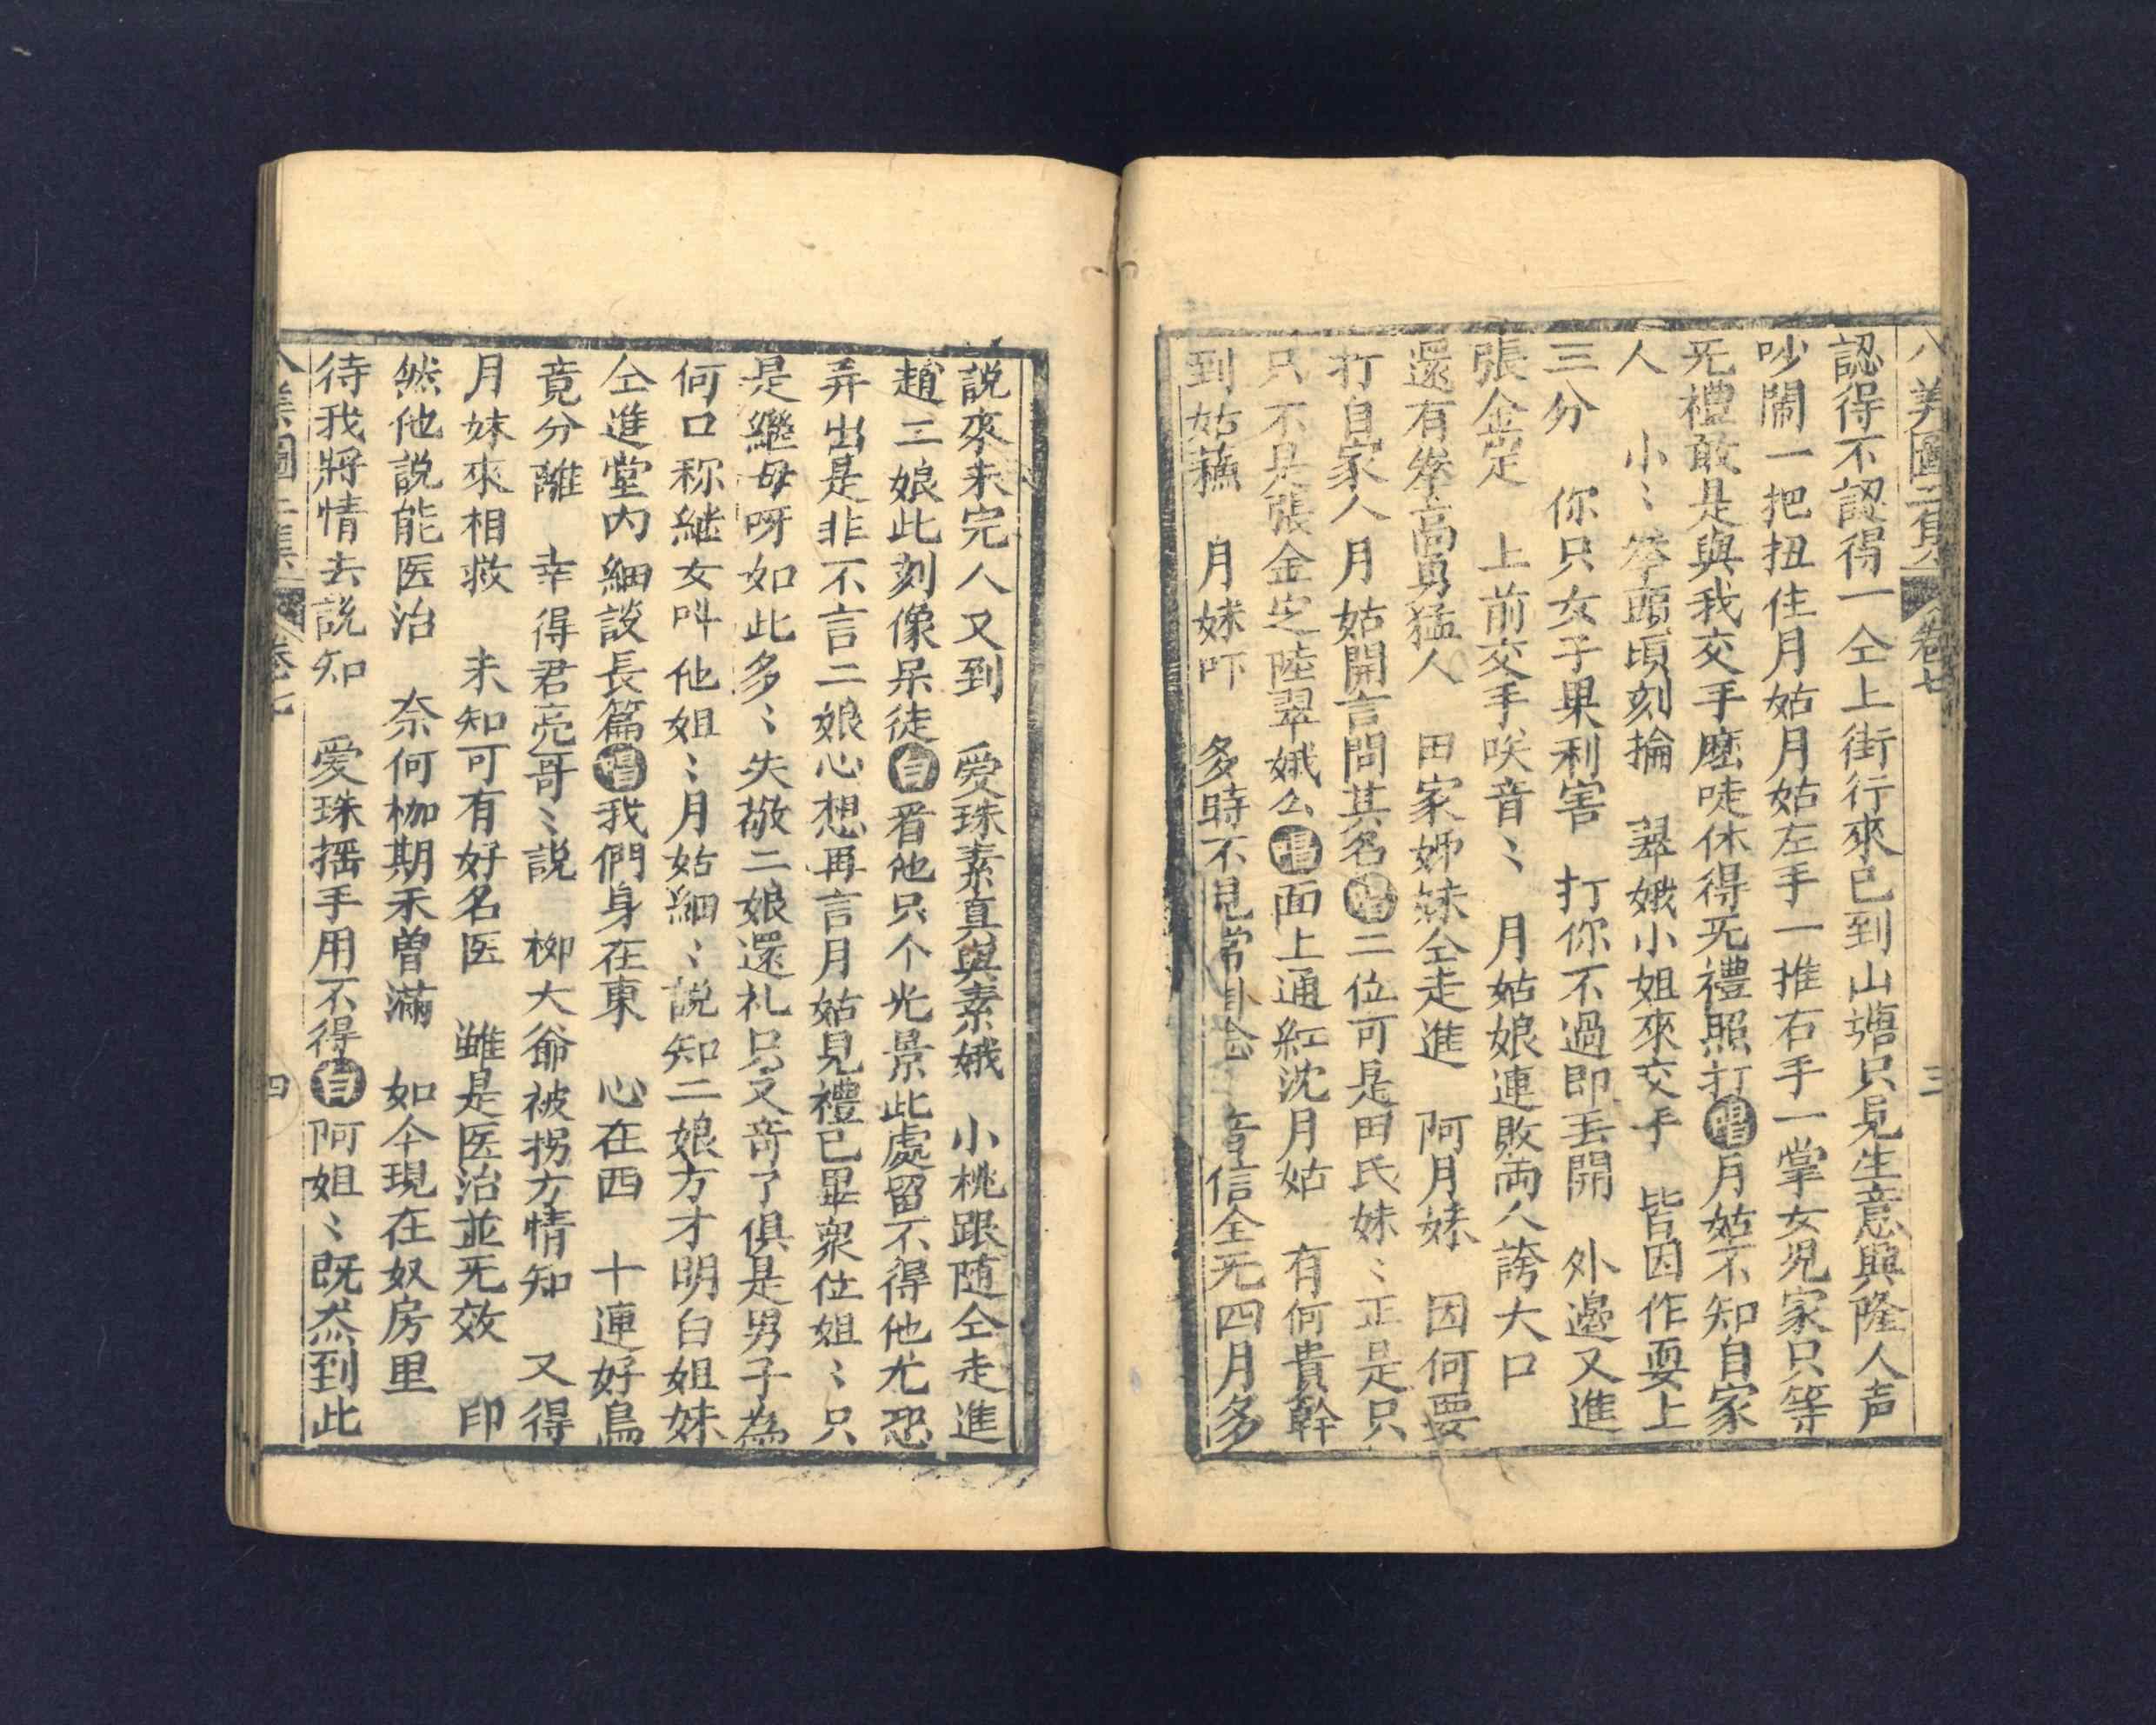 八美圖二集 卷七 三
認得不認得一仝上街行來已到山塘只見生意興隆人声
吵鬧一把扭住月姑月姑左手一推右手一掌女児家只等
旡禮敢是與我交手麽唗休得旡禮照打唱月姑不知自家
人 小〻拳頭頃刻掄 翠娥小姐來交手 皆因作耍上
三分 你只女子果利害 打你不過即丟開 外邉又進
張金定 上前交手咲音〻 月姑娘連敗両人誇大口
還有拳高勇猛人 田家姊妹仝走進 阿月妹 因何要
打自家人月姑開言問其名唱二位可是田氏妹〻正是只
只不是張金定陸翠娥么唱面上通紅沈月姑 有何貴幹
到姑蘓 月妹吓 多時不見常掛念 音信全旡四月多
說來未完人又到 爱珠素真與素娥 小桃跟随仝走進
趙二娘此刻像呆徒白看他只个光景此處留不得他尤恐
弄出是非不言二娘心想再言月姑見禮已畢衆位姐〻只
是繼母呀如此多〻失敬二娘還礼只又奇了俱是男子為
何口称継女呌他姐〻月姑細〻說知二娘方才明白姐妹
仝進堂内細談長篇唱我們身在東 心在西 十連好鳥
竟分離 幸得君亮哥〻說 柳大爺被拐方情知 又得
月妹來相救 未知可有好名医 雖是医治並旡效 印
然他説能医治 奈何枷期未曽滿 如今現在奴房里
待我將情去説知 爱珠揺手用不得白阿姐〻既然到此
八美圖二集 卷七 四